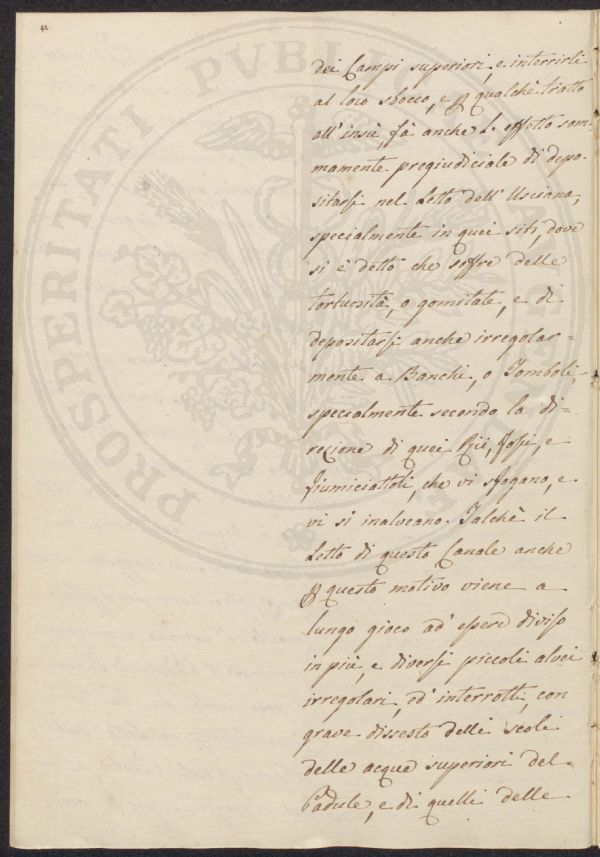 dei Campi superiori, e interrirli
al loro sbocco, e p qualche tratto
all'insù, fà anche l'effetto som-
mamente pregiudiciale di depo-
sitarsi nel Letto dell'Usciana,
specialmente in quei siti, dove
si è detto che soffre delle
tortuosità, o gomitate, e di
depositarsi anche irregolar=
mente a Banchi, o Tomboli,
specialmente secondo la di=
rezione di quei Rii, Fossi, e
fiumiciattoli, che vi sfogano, e
vi si inalveano. Talchè il
Letto di questo Canale anche
p questo motivo viene a
lungo gioco ad essere diviso
in più, e diversi piccoli alvei
irregolari, ed interrotti, con
grave dissesto delli scoli
delle acque superiori del
Padule, e di quelli delle
PROSPERITATI PVBLICAE